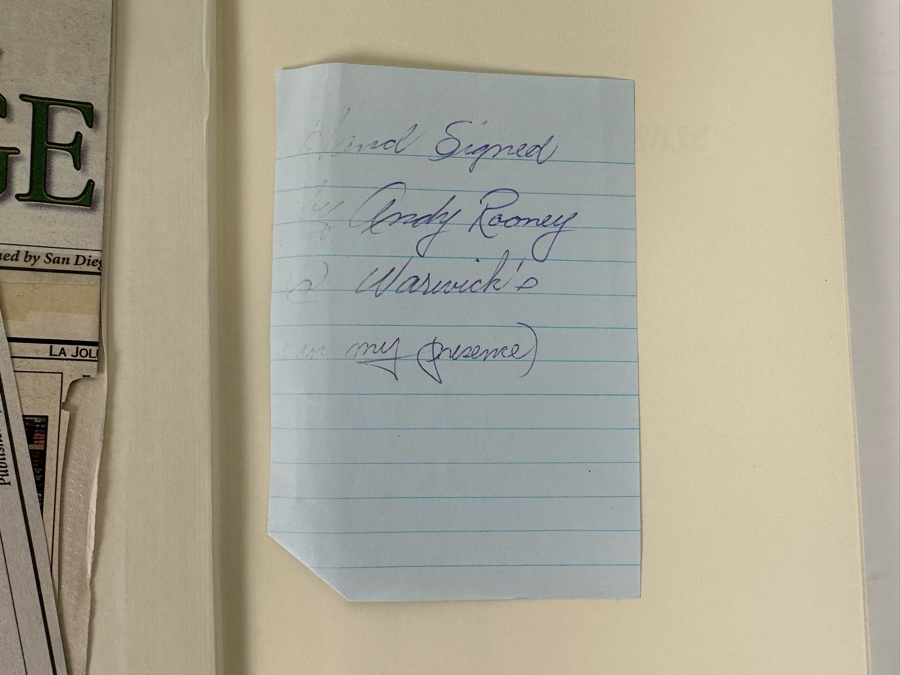 GE
ned by San Dieg
LA JOL
Publishe
Hand Signed
by Andy Rooney
@ Warwick's
(in my presence)